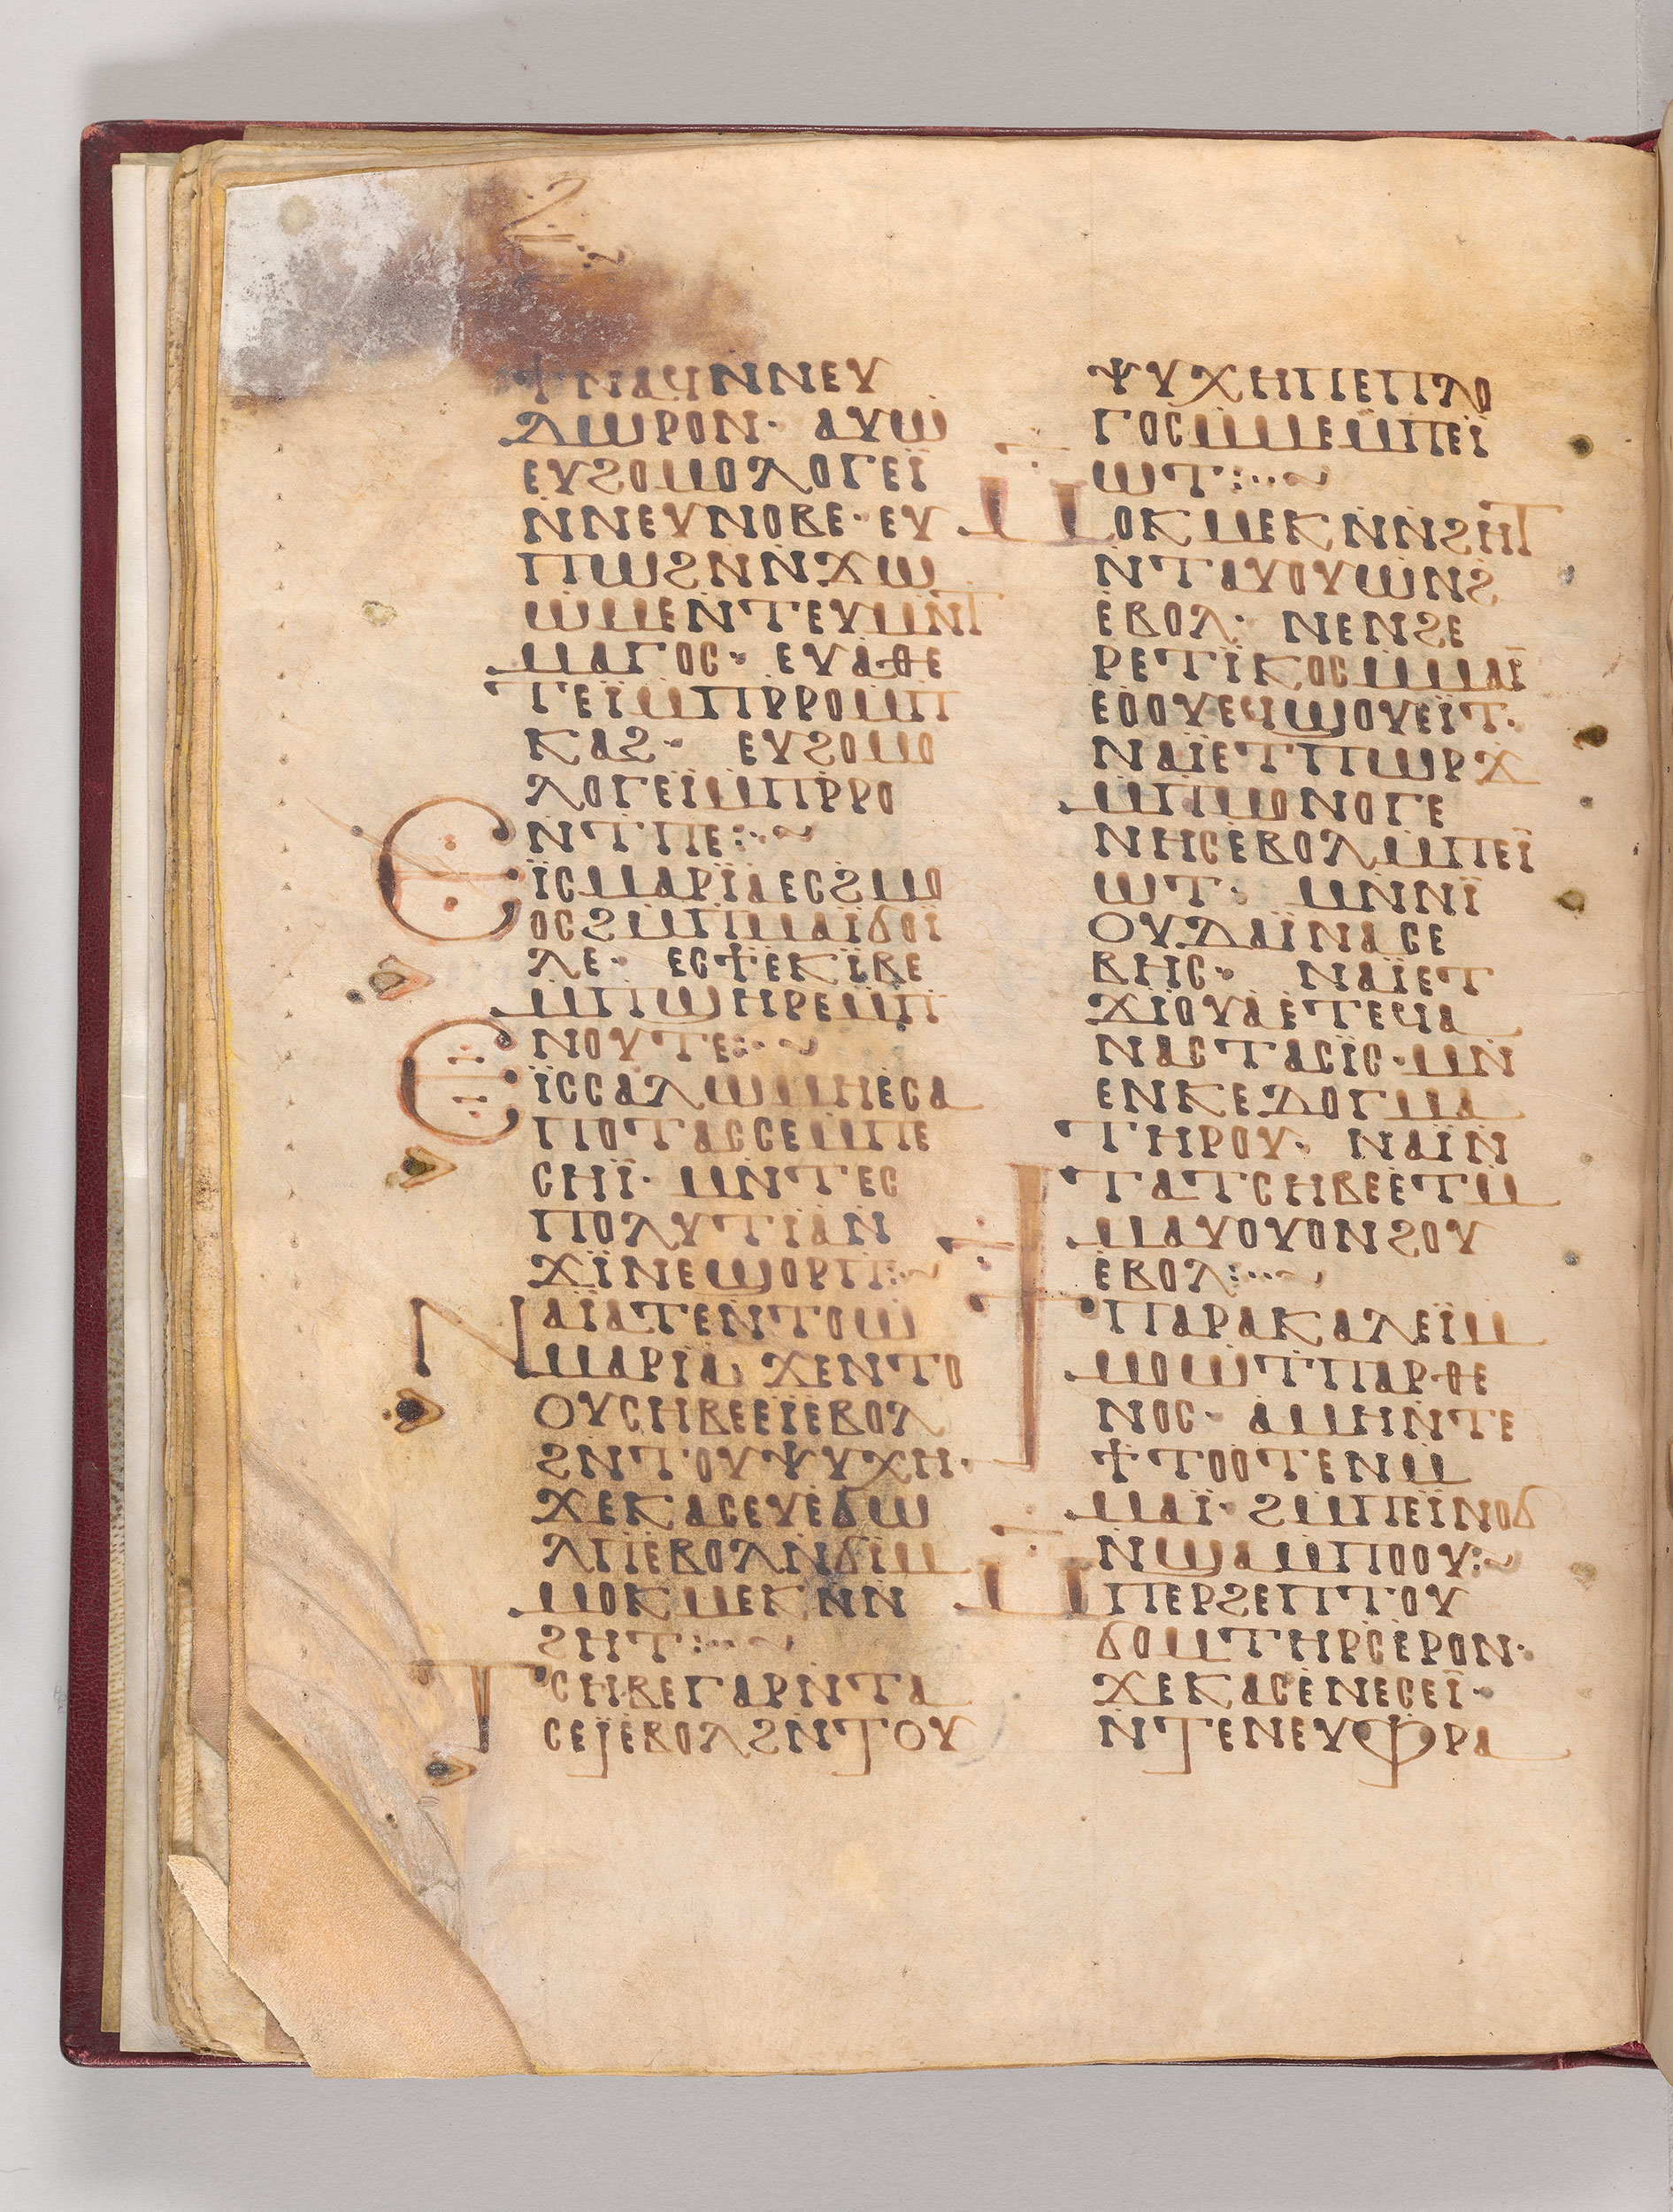 ϯⲛⲁϥⲛⲛⲉⲩ
ⲇⲱⲣⲟⲛ· ⲁⲩⲱ
ⲉⲩϩⲟⲙⲟⲗⲟⲅⲉⲓ̈
ⲛ̇ⲛⲉⲩⲛⲟⲃⲉ· ⲉⲩ
ⲡⲱϩⲛ̇ⲛ̇ϫⲱ
ⲱ̇ⲙⲉⲛ̇ⲧⲉⲩⲙⲛ̇ⲧ
ⲙⲁⲅⲟⲥ· ⲉⲩⲁ̇ⲑⲉ
ⲧⲉⲓ̈ⲙ̇ⲡⲣ̇ⲣⲟⲙ̇ⲡ
ⲕⲁϩ· ⲉⲩϩⲟⲙⲟ
ⲗⲟⲅⲉⲓ̈ⲙ̇ⲡⲣ̇ⲣⲟ
ⲛ̇ⲧⲡⲉ:·~
Ⲉⲓ̈ⲥⲙⲁⲣⲓ̈ⲁⲉⲥϩⲙⲟ
ⲟⲥϩⲙ̇ⲡⲙⲁⲓ̈ϭⲟⲓ
ⲗⲉ· ⲉⲥϯⲉⲕⲓ̈ⲃⲉ
ⲙ̇ⲡϣⲏⲣⲉⲙ̇ⲡ
ⲛⲟⲩⲧⲉ:·~
Ⲉⲓ̈ⲥⲥⲁⲗⲱⲙⲏⲉ̇ⲥⲁ
ⲡⲟⲧⲁⲥⲥⲉⲙ̇ⲡⲉ
ⲥⲏⲓ̈· ⲙⲛ̇ⲧⲉⲥ
ⲡⲟⲗⲩⲧⲓⲁⲛ̇
ϫⲓ̈ⲛⲉϣⲟⲣⲡ:·~
Ⲛⲁⲓ̈ⲁⲧⲉⲛ̇ⲧⲟⲱ
ⲙⲁⲣⲓ̈ⲁ ϫⲉⲛⲧⲟ
ⲟⲩⲥⲏⲃⲉⲉⲓ̈ⲉⲃⲟⲗ
ϩⲛ̇ⲧⲟⲩⲯⲩⲭⲏ·
ϫⲉⲕⲁⲥⲉⲩⲉ̇ϭⲱ
ⲗⲡⲉ̇ⲃⲟⲗⲛ̇ϭⲓⲙ
ⲙⲟⲕⲙⲉⲕⲛ̇ⲛ
ϩⲏⲧ:··~
Ⲧⲥⲏⲃⲉⲅⲁⲣⲛ̇ⲧⲁ
ⲥⲉⲓ̈ⲉ̇ⲃⲟⲗϩⲛ̇ⲧⲟⲩ
ⲯⲩⲭⲏⲡⲉⲡⲗⲟ
ⲅⲟⲥⲙ̇ⲙⲉⲙ̇ⲡⲉⲓ
ⲱⲧ:··~
Ⲙⲟⲕⲙⲉⲕⲛ̇ⲛ̇ϩⲏⲧ
ⲛ̇ⲧⲁⲩⲟⲩⲱⲛϩ
ⲉ̇ⲃⲟⲗ· ⲛⲉⲛϩⲉ
ⲣⲉⲧⲓ̈ⲕⲟⲥⲙ̇ⲙⲁⲓ̈
ⲉ̇ⲟⲟⲩⲉϥϣⲟⲩⲉⲓⲧ·
ⲛⲁⲓ̈ⲉⲧⲡⲱⲣϫ
ⲙ̇ⲡⲙⲟⲛⲟⲅⲉ
ⲛⲏⲥⲉ̇ⲃⲟⲗⲙ̇ⲡⲉⲓ̈
ⲱⲧ· ⲙⲛ̇ⲛⲓ̈
ⲟⲩⲇⲁⲓ̈ⲛⲁⲥⲉ
ⲃⲏⲥ· ⲛⲁⲓ̈ⲉⲧ
ϫⲓⲟⲩⲁⲉ̇ⲧⲉϥⲁ
ⲛⲁⲥⲧⲁⲥⲓ̈ⲥ·ⲙⲛ̇
ⲉⲛⲕⲉⲇⲟⲅⲙⲁ
ⲧⲏⲣⲟⲩ· ⲛⲁⲓ̈ⲛ̇
ⲧⲁⲧⲥⲏⲃⲉⲉⲧⲙ̇
ⲙⲁⲩⲟⲩⲟⲛϩⲟⲩ
ⲉ̇ⲃⲟⲗ:··~
Ϯⲡⲁⲣⲁⲕⲁⲗⲉⲓ̈ⲙ̇
ⲙⲟⲱ̇ⲧⲡⲁⲣⲑⲉ
ⲛⲟⲥ· ⲁⲙⲏⲛ̇ⲧⲉ
ϯⲧⲟⲟⲧⲉⲛⲙ̇
ⲙⲁⲓ̈· ϩⲙ̇ⲡⲉⲓ̈ⲛⲟϭ
ⲛ̇ϣⲁⲙ̇ⲡⲟⲟⲩ:~
Ⲙⲡⲉⲣϩⲉⲡⲧⲟⲩ
ϭⲟⲙⲧⲏⲣⲥⲉ̇ⲣⲟⲛ·
ϫⲉⲕⲁⲥⲉ̇ⲛⲉⲥⲉⲓ̈·
ⲛ̇ⲧⲉⲛⲉⲩⲫⲣⲁ